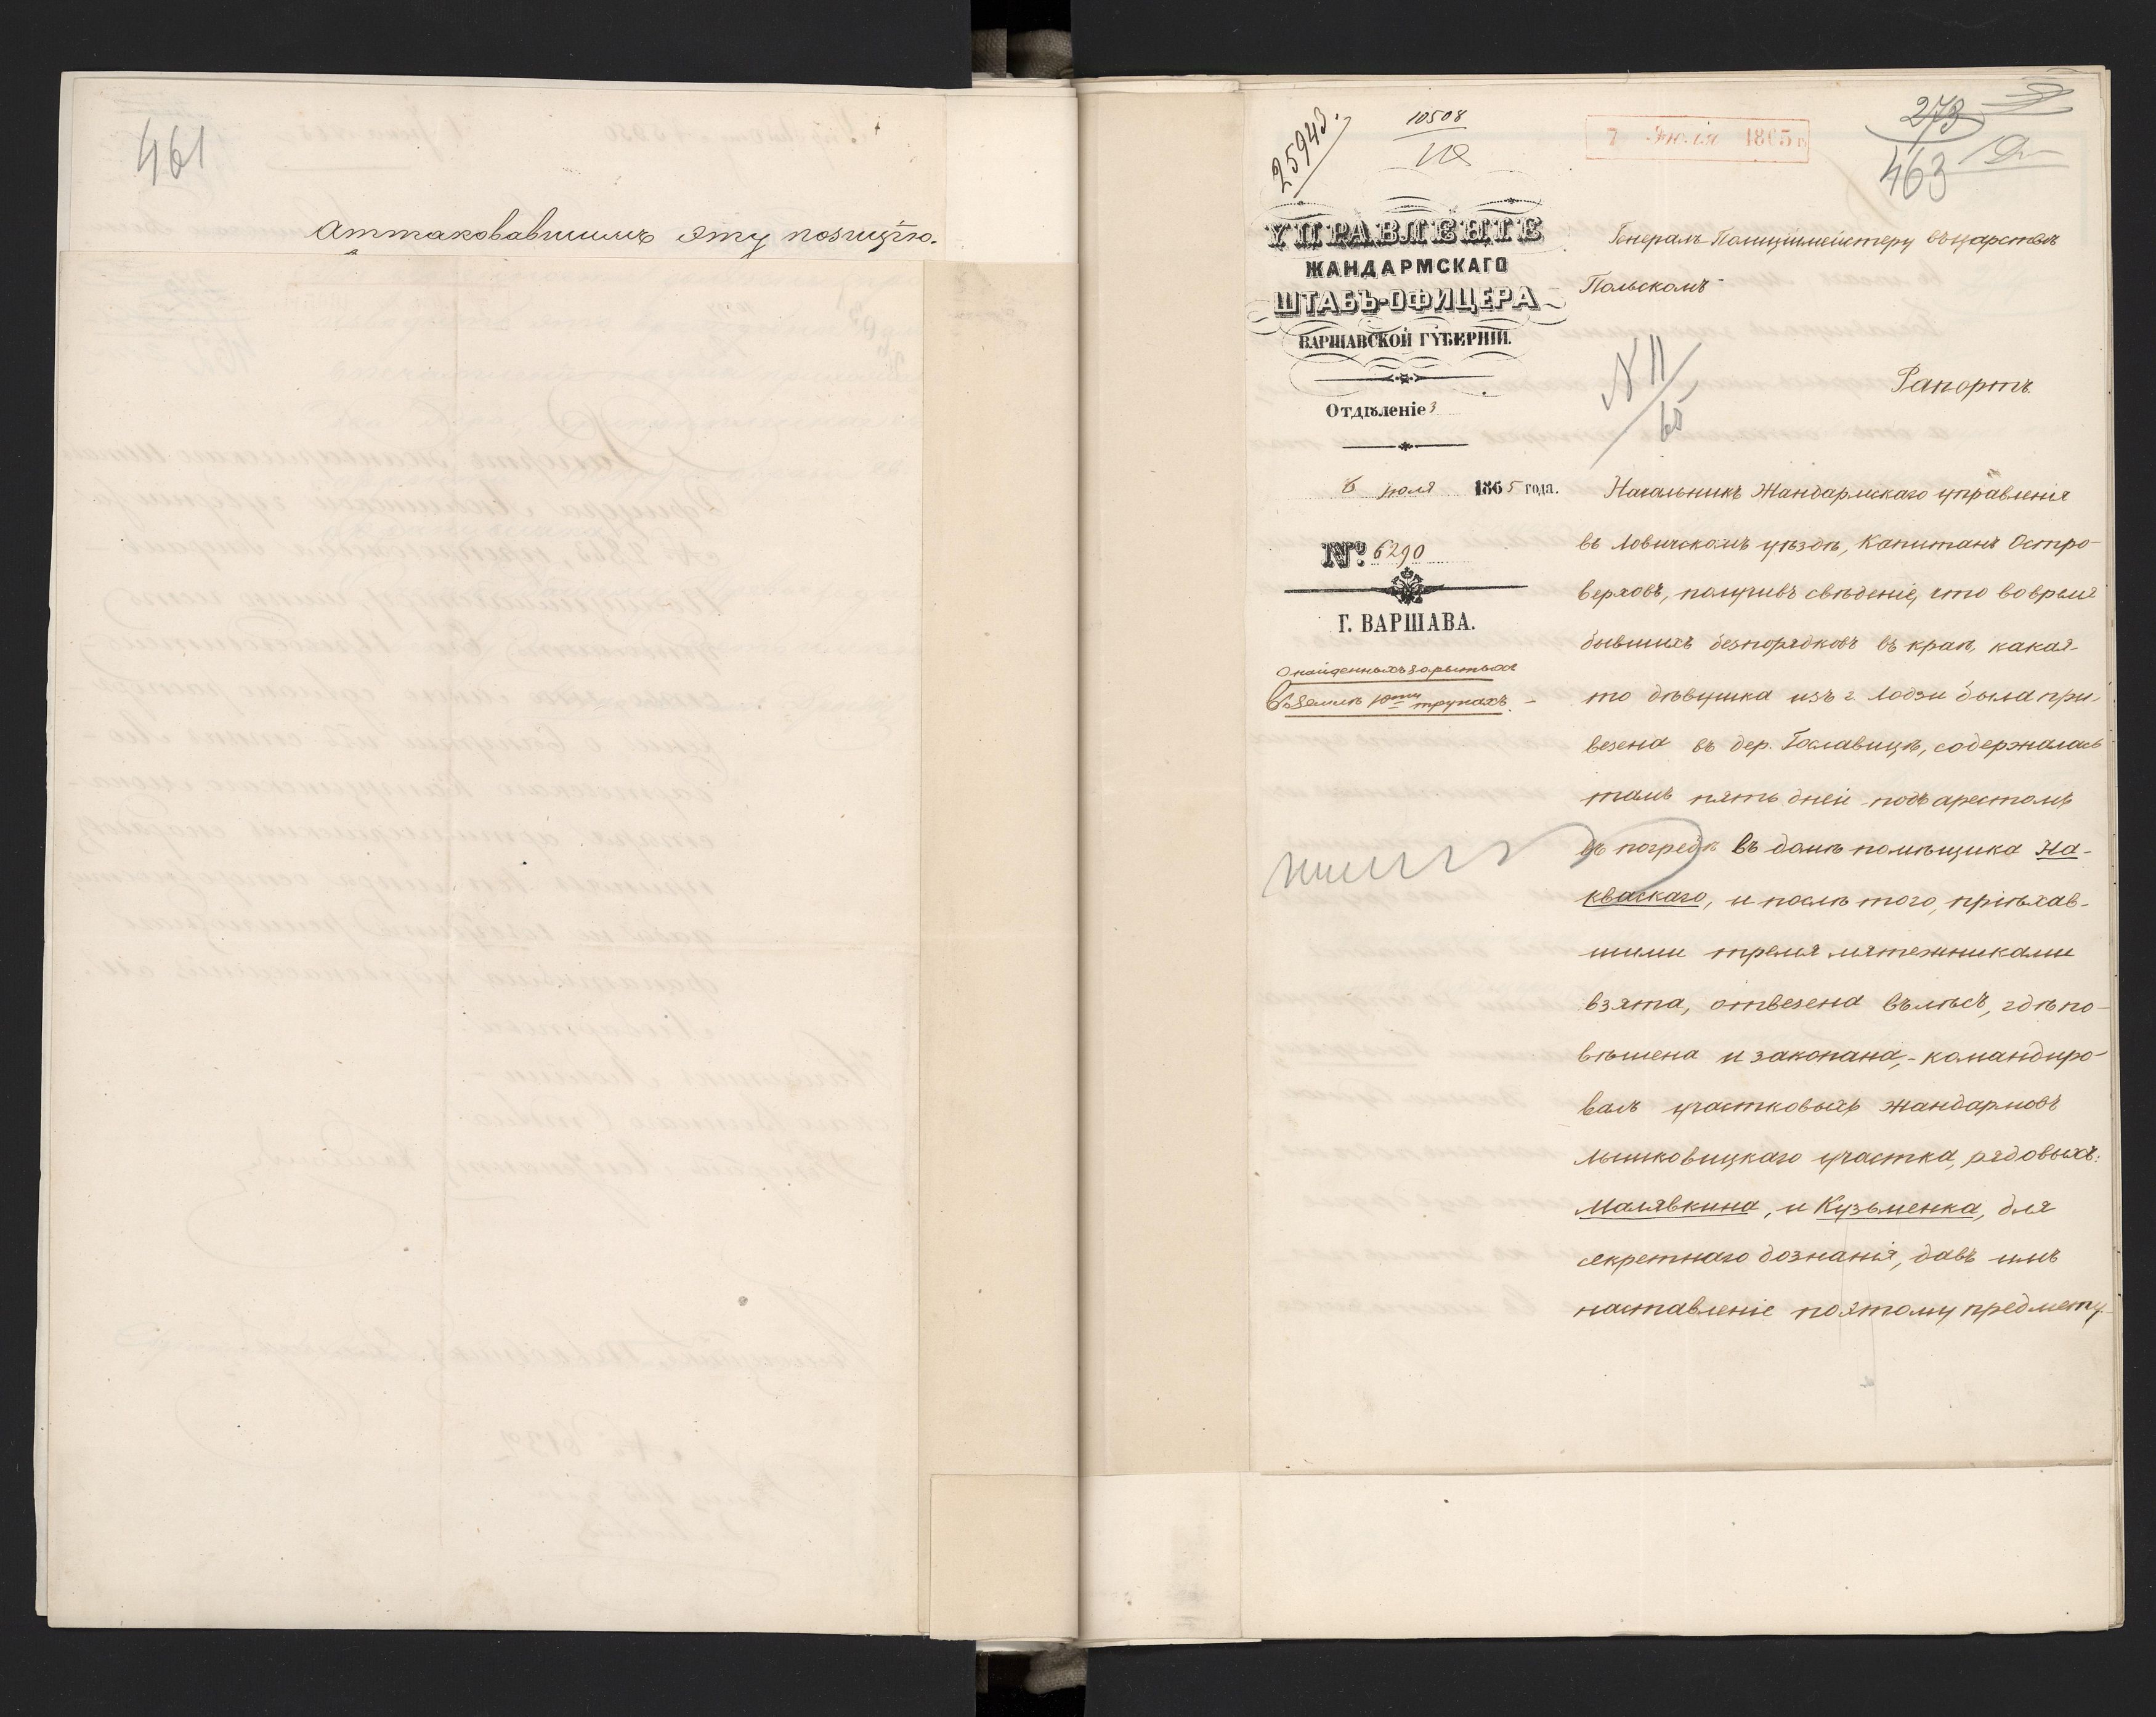 461
аттаковавшимъ эту позицію.
25943.
10508
7 Июля 1865 г.
273
463
УПРАВЛЕНІЕ
ЖАНДАРМСКАГО
ШТАБЪ-ОФИЦЕРА
ВАРШАВСКОЙ ГУБЕРНІИ.
Отдѣленіе 3
6 июля 1865 года.
№ 6290
Г. ВАРШАВА.
О найденныхъ зарытыхъ
въ землѣ трупахъ. -
Генералъ-Полиціймейстеру въ царствѣ
Польскомъ
N 11/65
Рапортъ.
Начальникъ Жандармскаго управленія
въ Ловичскомъ уѣздѣ, Капитанъ Остро-
верховъ, получивъ свѣденіе, что вовремя
бывшихъ безпорядковъ въ краѣ, какая-
то дѣвушка изъ г. Лодзи была при-
везена въ дер. Гославицѣ, содержалась
тамъ пять дней подъ арестомъ
въ погребѣ въ домѣ помѣщика На-
кваскаго, и послѣ того, пріѣхав-
шими тремя мятежниками
взята, отвезена въ лѣсъ, гдѣ по-
вѣшена и закопана, - командиро-
валъ участковыхъ жандармовъ
Мышковицкаго участка, рядовыхъ:
Малявкина, и Кузьменка, для
секретнаго дознанія, давъ имъ
наставленіе поэтому предмету.